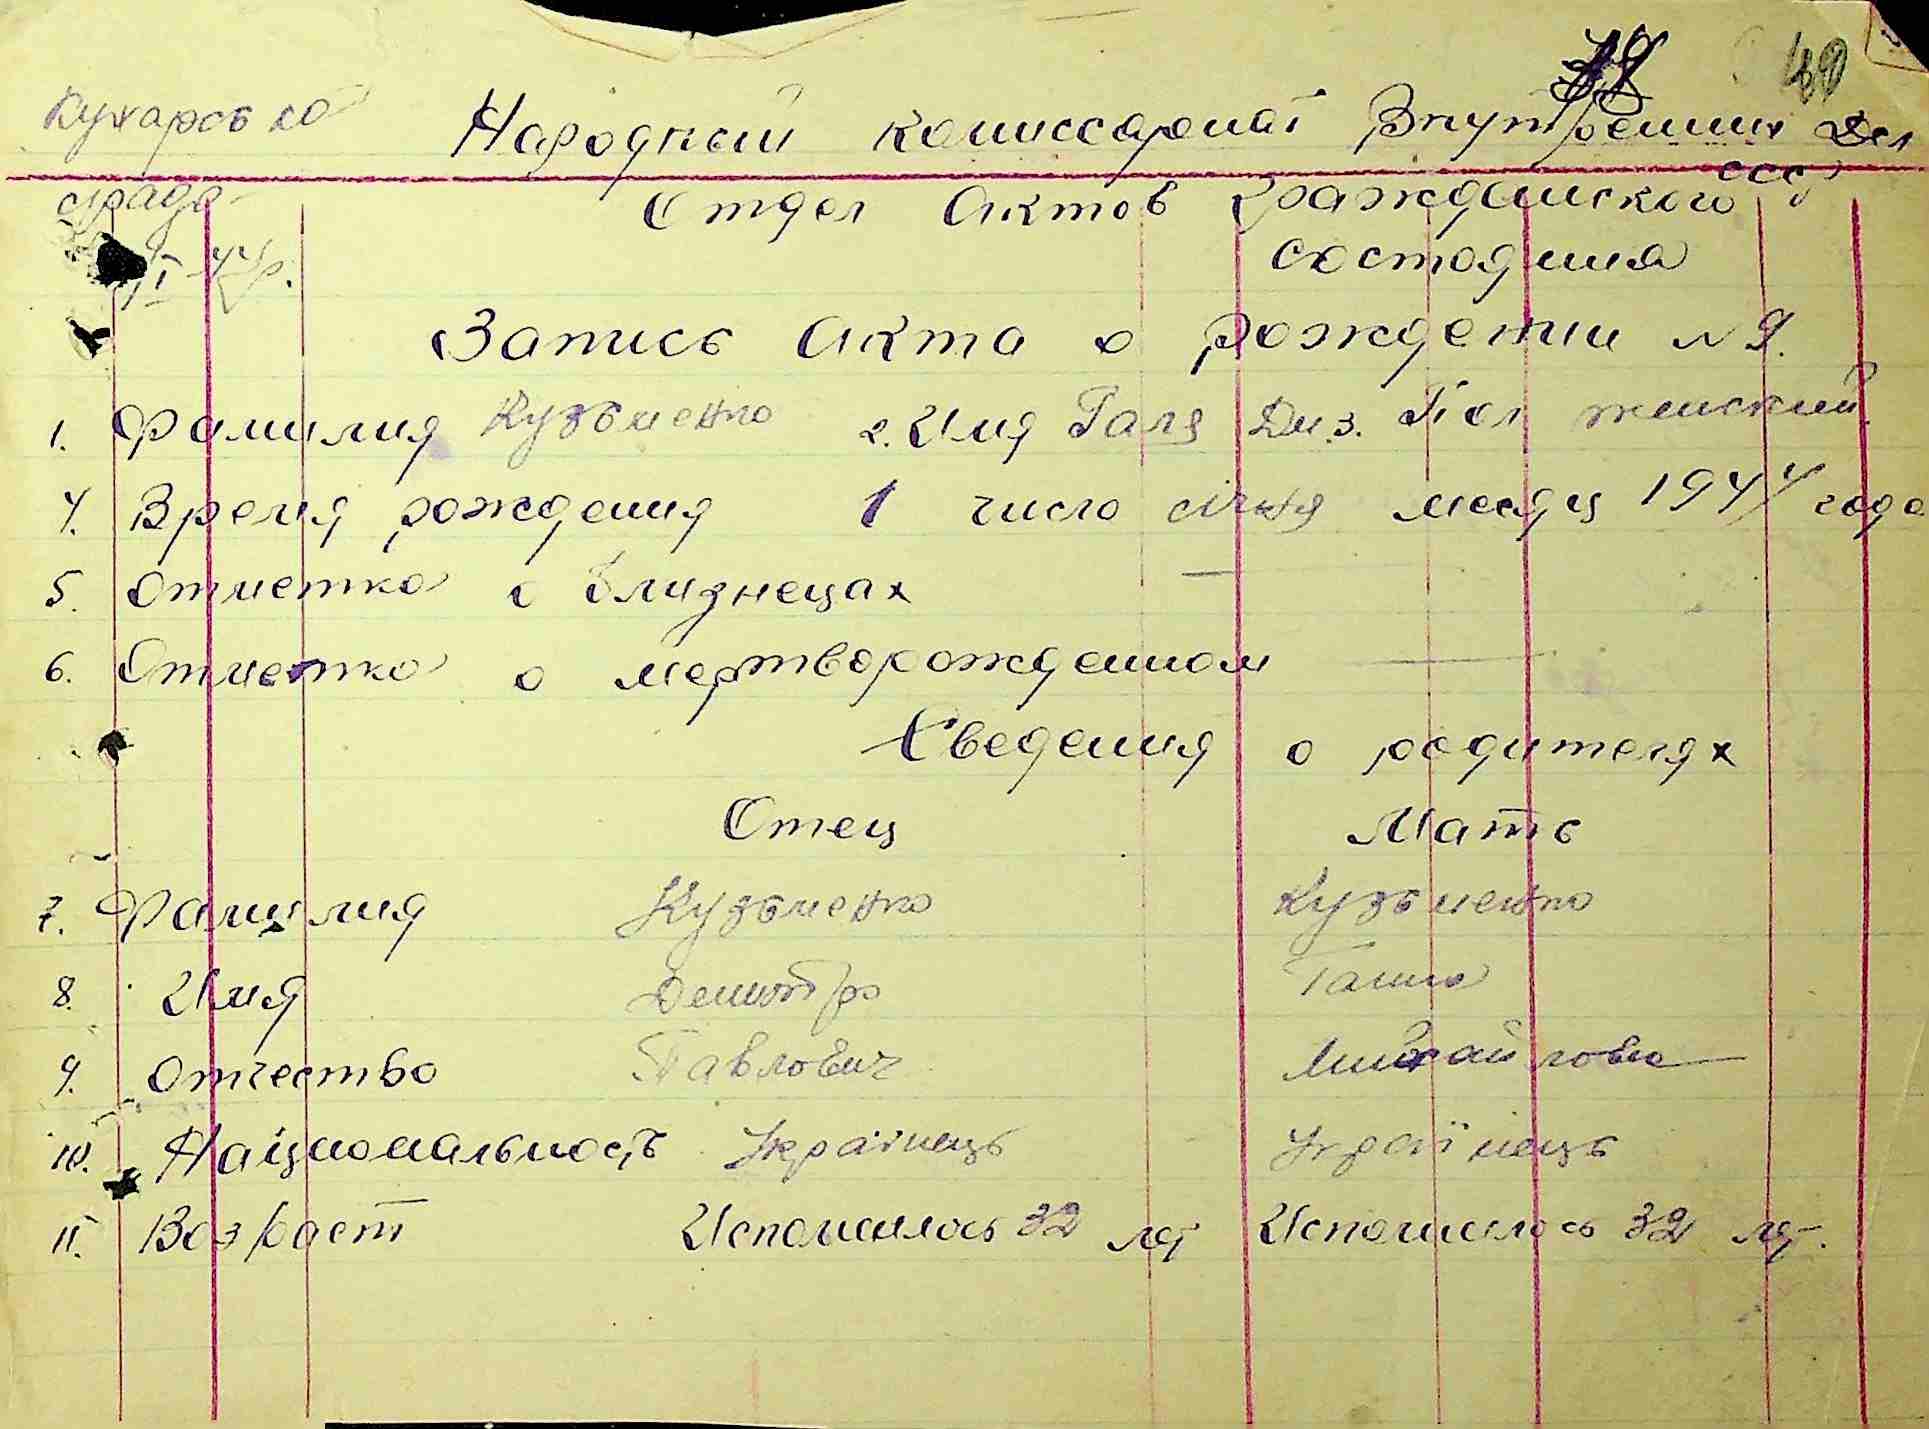 49
Кухарська
Народный комиссариат Внутренних Дел
СССР
сільрада
Отдел Актов Гражданского
I 44 р.
состояния
Запись Акта о рождении N 9.
1. Фамилия Кузьменко 2. Имя Галя Дм. 3. Пол женский
4. Время рождения 1 число січня месяц 1944 года
5. Отметка о близнецах —
6. Отметка о мертворожденном —
Сведения о родителях
Отец Мать
7. Фамилия Кузьменко Кузьменко
8. Имя Ганна
9. Отчество Павлович Михайловна
10. Национальность Українець Українець
11. Возраст Исполнилось 32 лет Исполнилось 32 лет.